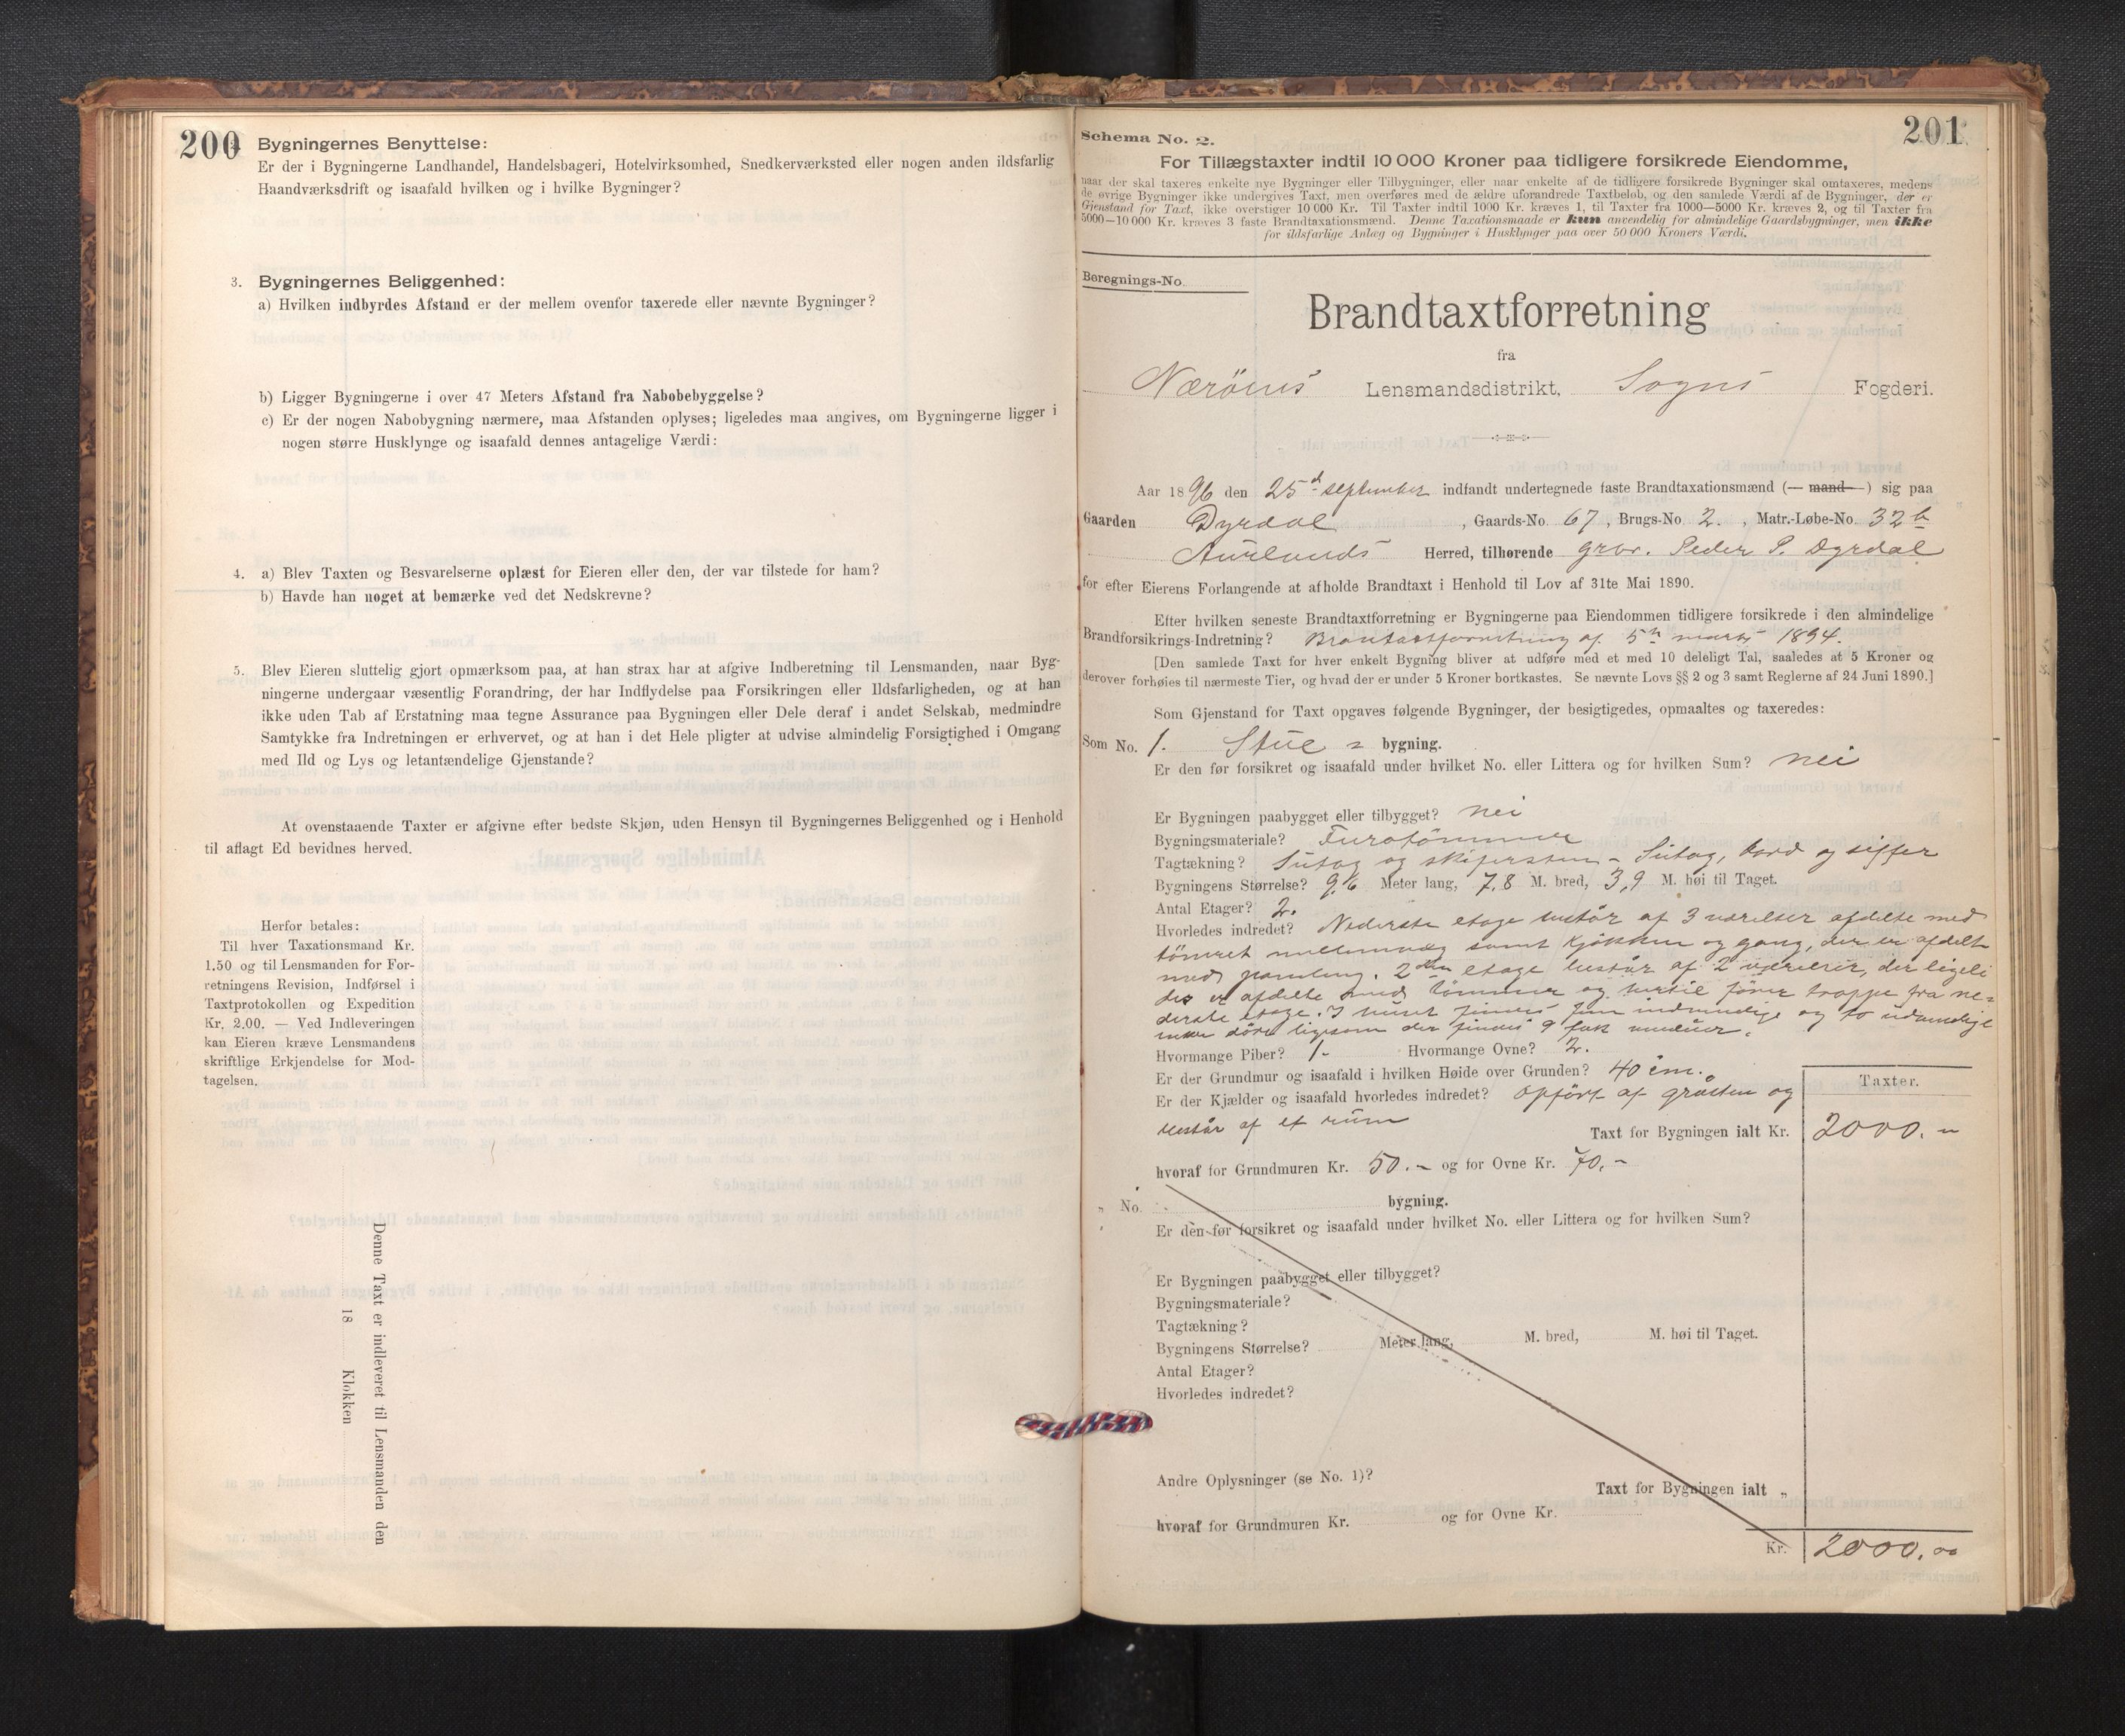 200
Bygningernes Benyttelse:
Er der i Bygningerne Landhandel, Handelsbageri, Hotelvirksomhed, Snedkerværksted eller nogen anden ildsfarlig
Haandværksdrift og isaafald hvilken og i hvilke Bygninger?
3. Bygningernes Beliggenhed:
a) Hvilken indbyrdes Afstand er der mellem ovenfor taxerede eller nævnte Bygninger?
b) Ligger Bygningerne i over 47 Meters Afstand fra Nabobebyggelse?
c) Er der nogen Nabobygning nærmere, maa Afstanden oplyses; ligeledes maa angives, om Bygningerne ligger i
nogen større Husklynge og isaafald dennes antagelige Værdi:
4. a) Blev Taxten og Besvarelserne oplæst for Eieren eller den, der var tilstede for ham?
b) Havde han noget at bemærke ved det Nedskrevne?
5. Blev Eieren sluttelig gjort opmærksom paa, at han strax har at afgive Indberetning til Lensmanden, naar Byg-
ningerne undergaar væsentlig Forandring, der har Indflydelse paa Forsikringen eller Ildsfarligheden, og at han
ikke uden Tab af Erstatning maa tegne Assurance paa Bygningen eller Dele deraf i andet Selskab, medmindre
Samtykke fra Indretningen er erhvervet, og at han i det Hele pligter at udvise almindelig Forsigtighed i Omgang
med Ild og Lys og letantændelige Gjenstande?
At ovenstaaende Taxter er afgivne efter bedste Skjøn, uden Hensyn til Bygningernes Beliggenhed og i Henhold
til aflagt Ed bevidnes herved.
Herfor betales:
Til hver Taxationsmand Kr.
1.50 og til Lensmanden for For-
retningens Revision, Indførsel i
Taxtprotokollen og Expedition
Kr. 2.00. — Ved Indleveringen
kan Eieren kræve Lensmandens
skriftlige Erkjendelse for Mod-
tagelsen.
Denne Taxt er indleveret til Lensmanden den
18 Klokken
Schema No. 2.
201
For Tillægstaxter indtil 10 000 Kroner paa tidligere forsikrede Eiendomme,
naar der skal taxeres enkelte nye Bygninger eller Tilbygninger, eller naar enkelte af de tidligere forsikrede Bygninger skal omtaxeres, medens
de øvrige Bygninger ikke undergives Taxt, men overføres med de ældre uforandrede Taxtbeløb, og den samlede Værdi af de Bygninger, der er
Gjenstand for Taxt, ikke overstiger 10 000 Kr. Til Taxter indtil 1000 Kr. kræves 1, til Taxter fra 1000—5000 Kr. kræves 2, og til Taxter fra
5000—10 000 Kr. kræves 3 faste Brandtaxationsmænd. Denne Taxationsmaade er kun anvendelig for almindelige Gaardsbygninger, men ikke
for ildsfarlige Anlæg og Bygninger i Husklynger paa over 50 000 Kroners Værdi.
Beregnings-No.
Brandtaxtforretning
fra
Næröens Lensmandsdistrikt, Sogns Fogderi.
Aar 1896 den 25d september indfandt undertegnede faste Brandtaxationsmænd (— mand —) sig paa
Gaarden Dyrdal, Gaards-No. 67, Brugs-No. 2., Matr.-Løbe-No. 32b
Aurlands Herred, tilhørende grbr. Peder P. Dyrdal
for efter Eierens Forlangende at afholde Brandtaxt i Henhold til Lov af 31te Mai 1890.
Efter hvilken seneste Brandtaxtforretning er Bygningerne paa Eiendommen tidligere forsikrede i den almindelige
Brandforsikrings-Indretning? Brantaxtforretning af 5te marts 1894.
[Den samlede Taxt for hver enkelt Bygning bliver at udføre med et med 10 deleligt Tal, saaledes at 5 Kroner og
derover forhøies til nærmeste Tier, og hvad der er under 5 Kroner bortkastes. Se nævnte Lovs §§ 2 og 3 samt Reglerne af 24 Juni 1890.]
Som Gjenstand for Taxt opgaves følgende Bygninger, der besigtigedes, opmaaltes og taxeredes:
Som No. 1. Stue = bygning.
Er den før forsikret og isaafald under hvilket No. eller Littera og for hvilken Sum? nei
Er Bygningen paabygget eller tilbygget? nei
Bygningsmateriale? Furotömmer
Tagtækning? Sutag og skifersten - Sutag, bord og
Bygningens Størrelse? 9,6 Meter lang, 7,8 M. bred, 3,9 M. høi til Taget.
Antal Etager? 2.
Hvorledes indredet? Nederste etage består af 3 værelser afdelte med
tömret mellemvæg samt kjökken og gang, der er afdelt
med paneling. 2den etage består af 2 værelser, der ligele
des er afdelte med tömmer og hertil förer trappe fra ne-
derste etage. I huset findes fem indvendige og to udvendige
döre ligesom der findes 9 fag vinduer.
Hvormange Piber? 1- Hvormange Ovne? 2.
Er der Grundmur og isaafald i hvilken Høide over Grunden? 40 cm.
Er der Kjælder og isaafald hvorledes indredet? Opfört af gråsten og
består af et rum
Taxter.
Taxt for Bygningen ialt Kr. 2000. -
hvoraf for Grundmuren Kr. 50.- og for Ovne Kr. 70.-
„ No. bygning.
Er den før forsikret og isaafald under hvilket No. eller Littera og for hvilken Sum?
Er Bygningen paabygget eller tilbygget?
Bygningsmateriale?
Tagtækning?
Bygningens Størrelse? Meter lang, M. bred, M. høi til Taget.
Antal Etager?
Hvorledes indredet?
Andre Oplysninger (se No. 1)?
Taxt for Bygningen ialt „
hvoraf for Grundmuren Kr. og for Ovne Kr.
Kr. 2000.00